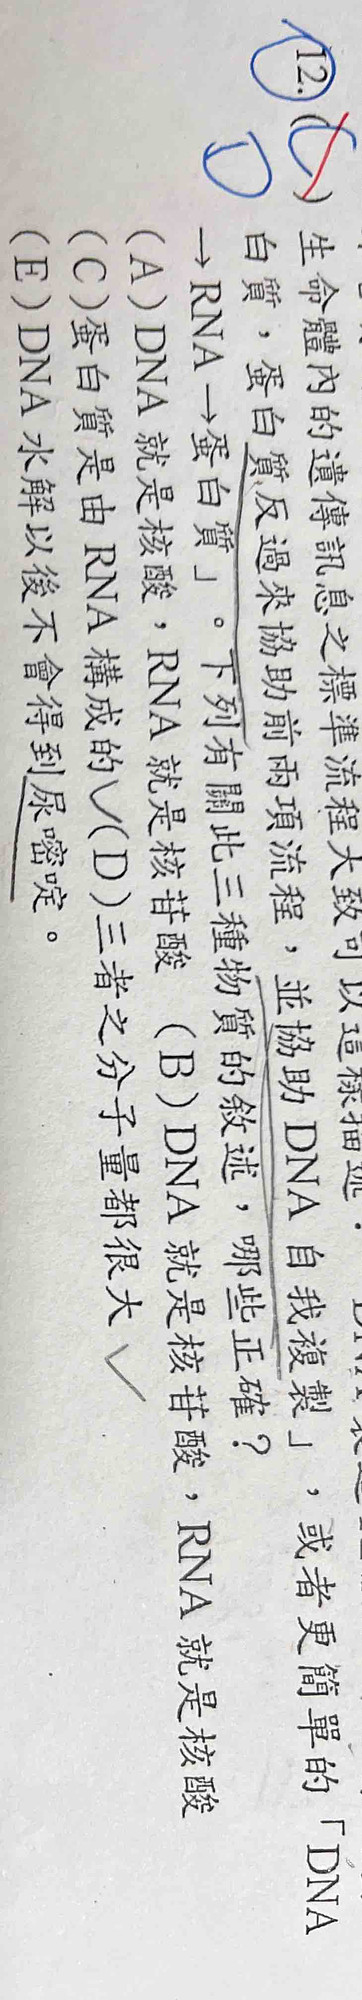 12. ( C ) 生命體內的遺傳訊息之標準流程大致可以這樣描述：
白質，蛋白質反過來協助前兩項流程，並協助DNA自我複製」，或者更簡單的「DNA
→RNA→蛋白質」。下列有關此三種物質的敘述，哪些正確？
(A)DNA就是核酸，RNA就是核苷酸 (B)DNA就是核苷酸，RNA就是核酸
(C)蛋白質是由RNA構成的 (D)三者之分子量都很大
(E)DNA水解以後不會得到尿嘧啶。
D